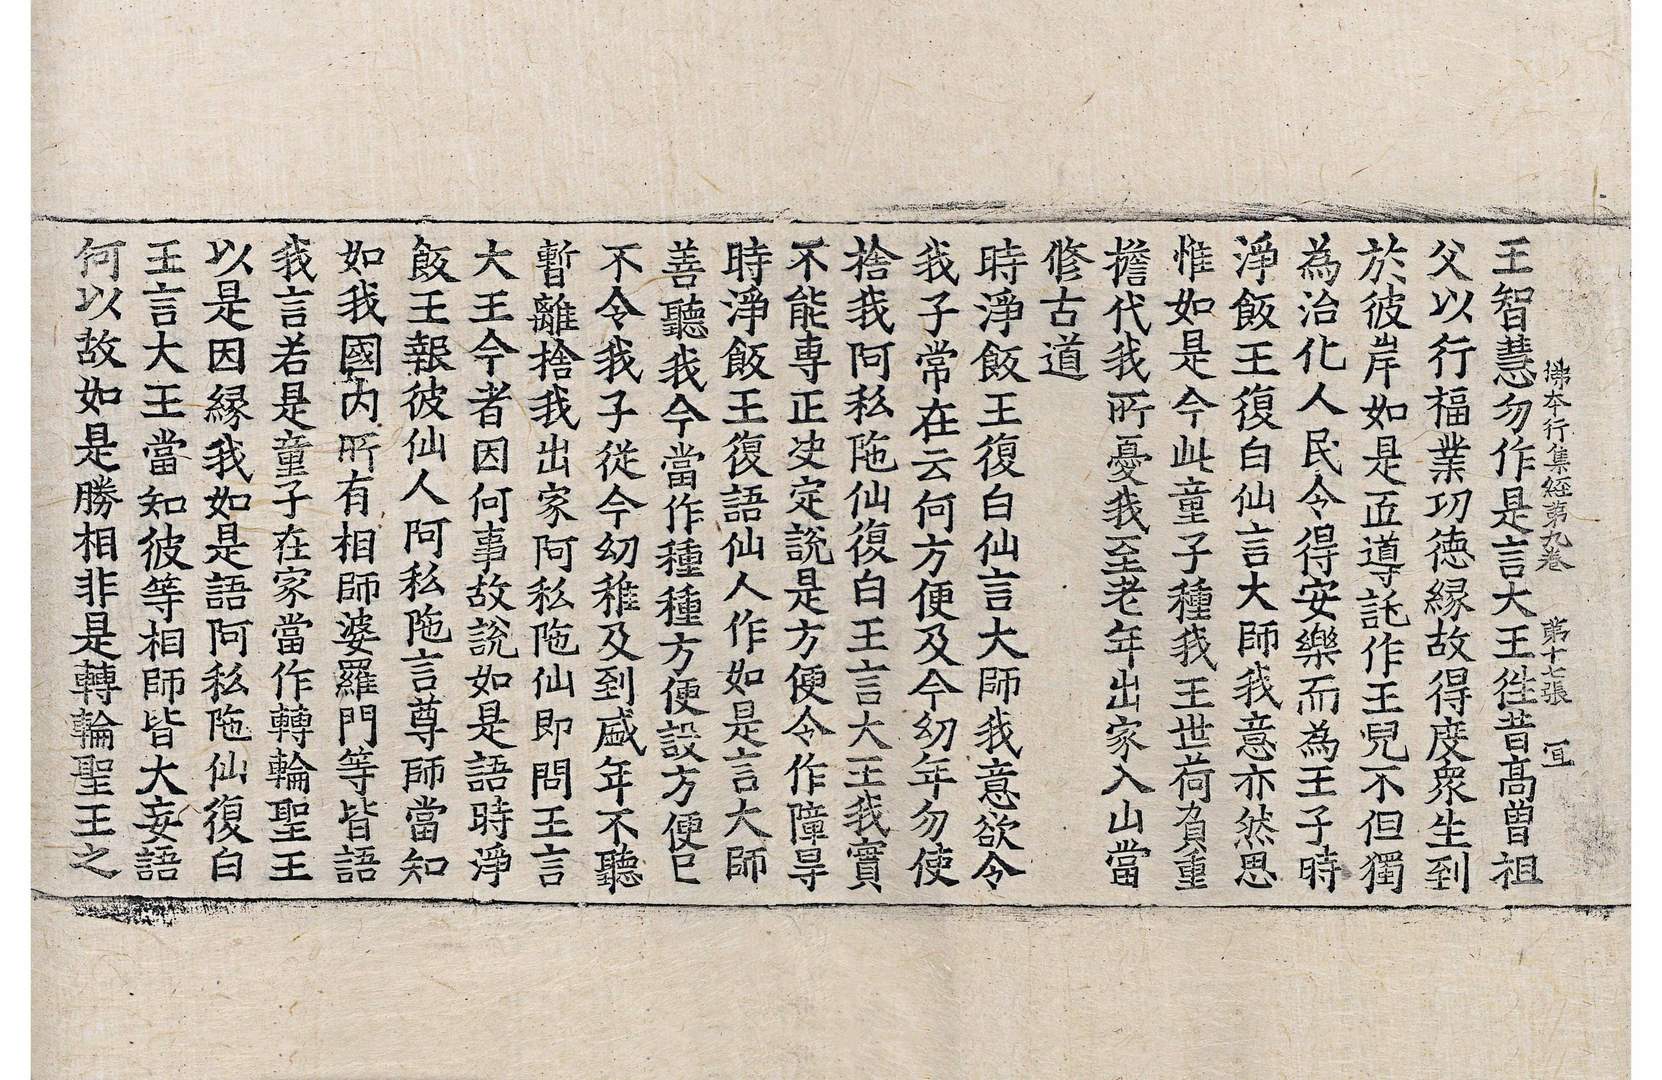 佛本行集經第九卷 第十七張 冝
王智慧勿作是言大王徃昔髙曽祖
父以行福業功徳縁故得度衆生到
於彼岸如是正道託作王兒不但獨
為治化人民令得安樂而為王子時
淨飯王復白仙言大師我意亦然思
惟如是今此童子種我王世荷負重
擔代我所憂我至老年出家入山當
修古道
時淨飯王復白仙言大師我意欲令
我子常在云何方便及今幼年勿使
捨我阿私陁仙復白王言大王我實
不能専正決定說是方便令作障㝵
時淨飯王復語仙人作如是言大師
善聽我今當作種種方便設方便已
不令我子從今幼稚及到盛年不聽
暫離捨我出家阿私陁仙即問王言
大王今者因何事故說如是語時淨
飯王報彼仙人阿私陁言尊師當知
如我國内所有相師婆羅門等皆語
我言若是童子在家當作轉輪聖王
以是因縁我如是語阿私陁仙復白
王言大王當知彼等相師皆大妄語
何以故如是勝相非是轉輪聖王之